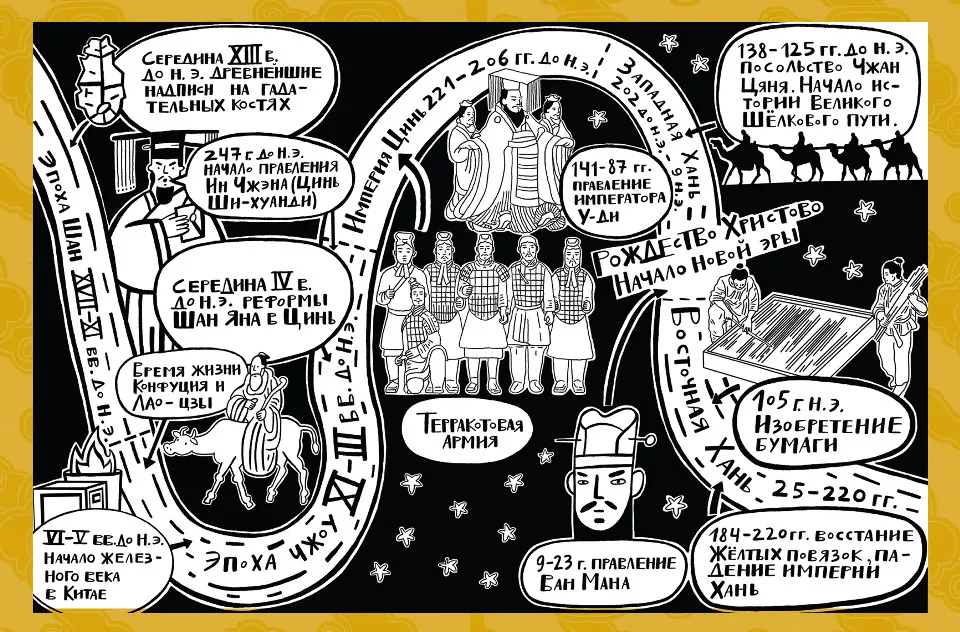 Середина XIII в.
до н. э. древнейшие
надписи на гада-
тельных костях
Эпоха Шан XVII–XI вв. до н. э.
247 г. до н. э.
начало правления
Ин Чжэна (Цинь
Ши-хуанди)
Середина IV в.
до н. э. реформы
Шан Яна в Цинь
Время жизни
Конфуция и
Лао-цзы
VI–V вв. до н. э.
Начало желез-
ного века
в Китае
Эпоха Чжоу XI–III вв. до н. э.
Империя Цинь 221–206 гг. до н. э.
Терракотовая
армия
141–87 гг.
правление
императора
У-ди
Западная Хань =
202 до н. э. – 9 н. э.
138–125 гг. до н. э.
посольство Чжан
Цяня. Начало ис-
тории Великого
Шёлкового пути.
Рождество Христово
Начало новой эры
9–23 г. правление
Ван Мана
Восточная Хань 25–220 гг.
105 г. н. э.
Изобретение
бумаги
184–220 гг. восстание
Жёлтых повязок, па-
дение империи
Хань